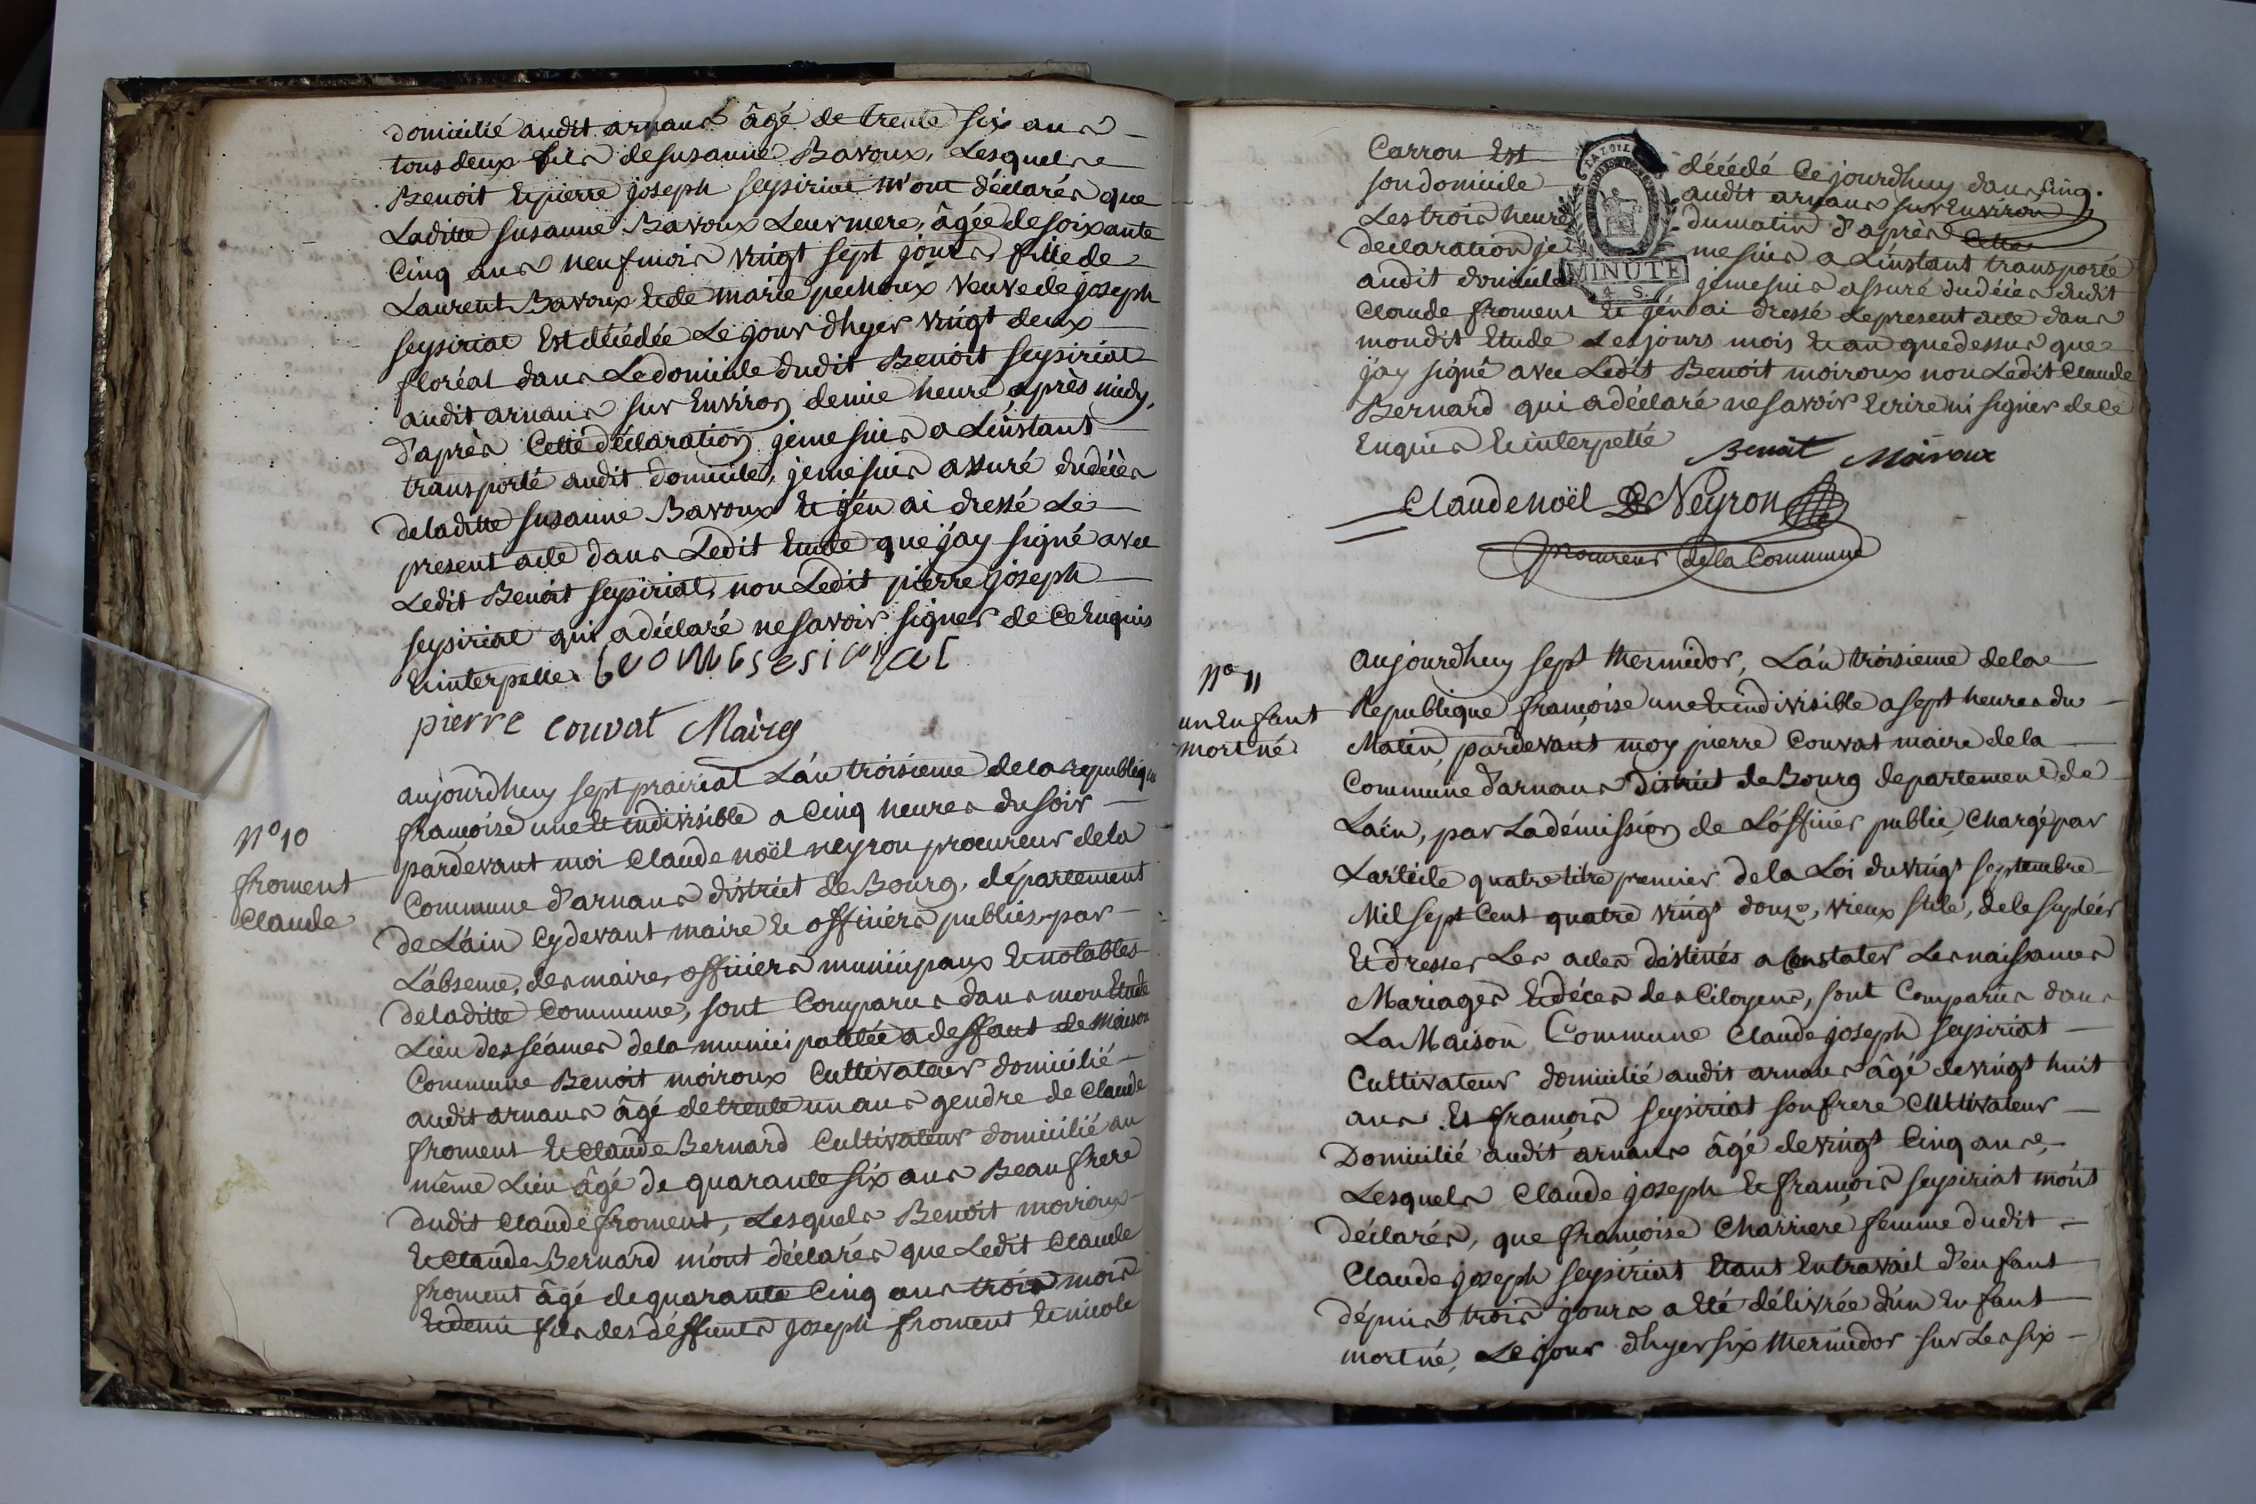 domicilié audit arnans âgé de trente six ans
tous deux fils de susanne Bavoux, Lesquels
Benoit & pierre joseph seysiriat m'ont déclarés que
Laditte susanne Bavoux Leur mere, âgée de soixante
Cinq ans neuf mois vingt sept jours fille de
Laurent Bavoux & de marie pechoux veuve de joseph
seysiriat Est décédée Le jour d'hyer vingt deux
floréal dans Le domicile dudit Benoit seysiriat
audit arnans sur Environ demie heure après midy,
d'après Cette déclaration je me suis a L'instant
transporté audit domicile, je me suis assuré du décès
de laditte susanne Bavoux & j'en ai dressé Le
present acte dans Ledit Etude que j'ay signé avec
Ledit Benoit seysiriat, non Ledit pierre joseph
seysiriat qui a déclaré ne savoir signer de ce Enquis
& interpellé
pierre couvat Maire
N° 10
froment
Claude
aujourdhuy sept prairial L'an troisieme de la republique
françoise une & indivisible a Cinq heures du soir
pardevant moi Claude noël neyron procureur de la
Commune d'arnans district de Bourg, département
de L'ain Cydevant maire & officiers publics par
L'absence, des maire, officiers municipaux & notables
de laditte Commune, sont Comparus dans mon Etude
Lieu des séances de la municipalitée a deffaut de Maison
Commune Benoit moiroux Cultivateur domicilié
audit arnans âgé de trente un ans gendre de Claude
froment & Claude Bernard Cultivateur domicilié au
même Lieu âgé de quarante six ans Beaufrere
dudit Claude froment, Lesquels Benoit moiroux
& Claude Bernard m'ont déclarés que Ledit Claude
froment âgé de quarante Cinq ans trois mois
& demi fils des déffunts joseph froment & nicole
Carron Est décédé Ce jourdhuy dans
son domicile audit arnans sur Environ Cinq.
Les trois heures du matin d'après Cette
declaration je me suis a L'instant transporté
audit domicile je me suis assuré du décès dudit
MINUTE
4 S.
Claude froment & j'en ai dressé Le present acte dans
mondit Etude Les jours mois & an que dessus que
j'ay signé avec Ledit Benoit moiroux non Ledit Claude
Bernard qui a déclaré ne savoir Ecrire ni signer de ce
Enquis & interpellé Benoit Moiroux
Claude noël Neyron
procureur de la Commune
N° 11
un Enfant
mort né
aujourdhuy sept thermidor, L'an troisieme de la
Republique françoise une & indivisible a sept heures du
Matin, pardevant moy pierre Couvat maire de la
Commune d'arnans district de Bourg departement de
L'ain, par La démission de L'officier public, Chargé par
L'article quatre titre premier de la Loi du vingt septembre
Mil sept Cent quatre vingt douze, vieux stile, de le supléer
& dresser Les actes déstinés a Constater Les naissances
Mariages & décès des Citoyens, sont Comparus dans
La Maison Commune Claude joseph seysiriat
Cultivateur domicilié audit arnans âgé de vingt huit
ans. Et françois seysiriat son frere Cultivateur
Domicilié audit arnans âgé de vingt Cinq ans,
Lesquels Claude joseph & françois seysiriat m'ont
déclarés, que françoise Charriere femme dudit
Claude joseph seysiriat Etant En travail d'enfant
dépuis trois jours a Eté délivrée d'un Enfant
mort né, Le jour d'hyer six thermidor sur Les six